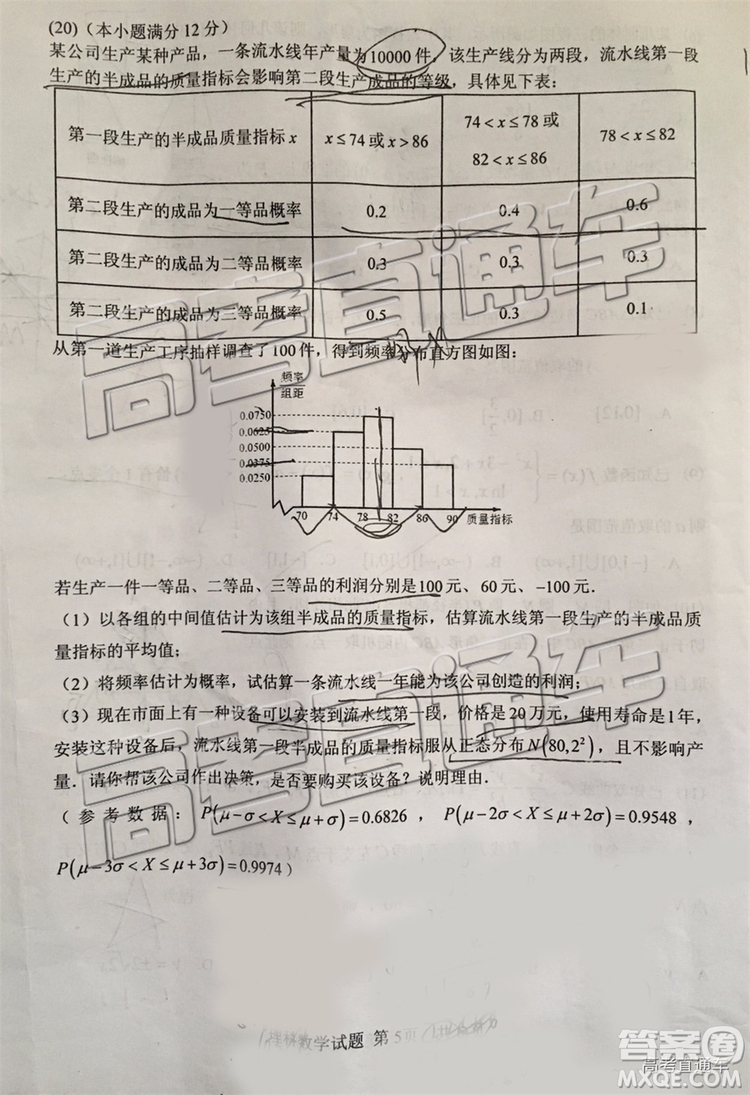 (20)（本小题满分12分）
某公司生产某种产品，一条流水线年产量为10000件，该生产线分为两段，流水线第一段
生产的半成品的质量指标会影响第二段生产成品的等级，具体见下表：
第一段生产的半成品质量指标 x x≤74或x>86 74<x≤78或 82<x≤86 78<x≤82
第二段生产的成品为一等品概率 0.2 0.4 0.6
第二段生产的成品为二等品概率 0.3 0.3 0.3
第二段生产的成品为三等品概率 0.5 0.3 0.1
从第一道生产工序抽样调查了100件，得到频率分布直方图如图：
频率
组距
0.0750
0.0625
0.0500
0.0375
0.0250
70 74 78 82 86 90 质量指标
若生产一件一等品、二等品、三等品的利润分别是100元、60元、-100元．
（1）以各组的中间值估计为该组半成品的质量指标，估算流水线第一段生产的半成品质
量指标的平均值；
（2）将频率估计为概率，试估算一条流水线一年能为该公司创造的利润；
（3）现在市面上有一种设备可以安装到流水线第一段，价格是20万元，使用寿命是1年，
安装这种设备后，流水线第一段半成品的质量指标服从正态分布N(80,2²)，且不影响产
量．请你帮该公司作出决策，是否要购买该设备？说明理由．
（参考数据：P(μ-σ<X≤μ+σ)=0.6826，P(μ-2σ<X≤μ+2σ)=0.9548，
P(μ-3σ<X≤μ+3σ)=0.9974）
数学试题 第5页
高考直通车
答案圈
高考直通车
MXQE.COM